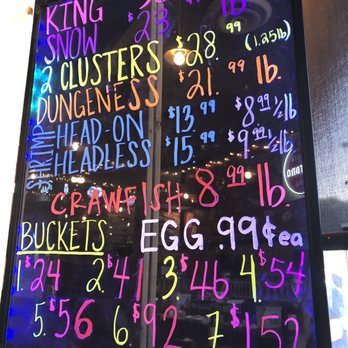 KING lb
SNOW $23
2 CLUSTERS $28.99 (1.25lb)
DUNGENESS $21.99 lb.
SHRIMP HEAD-ON $13.99 $8.99 ½lb
HEADLESS $15.99 $9.99 ½lb
CRAWFISH 8.99 lb.
BUCKETS: EGG .99¢ea
1. $24 2. $41 3. $46 4. $54
5. $56 6. $92 7. $152